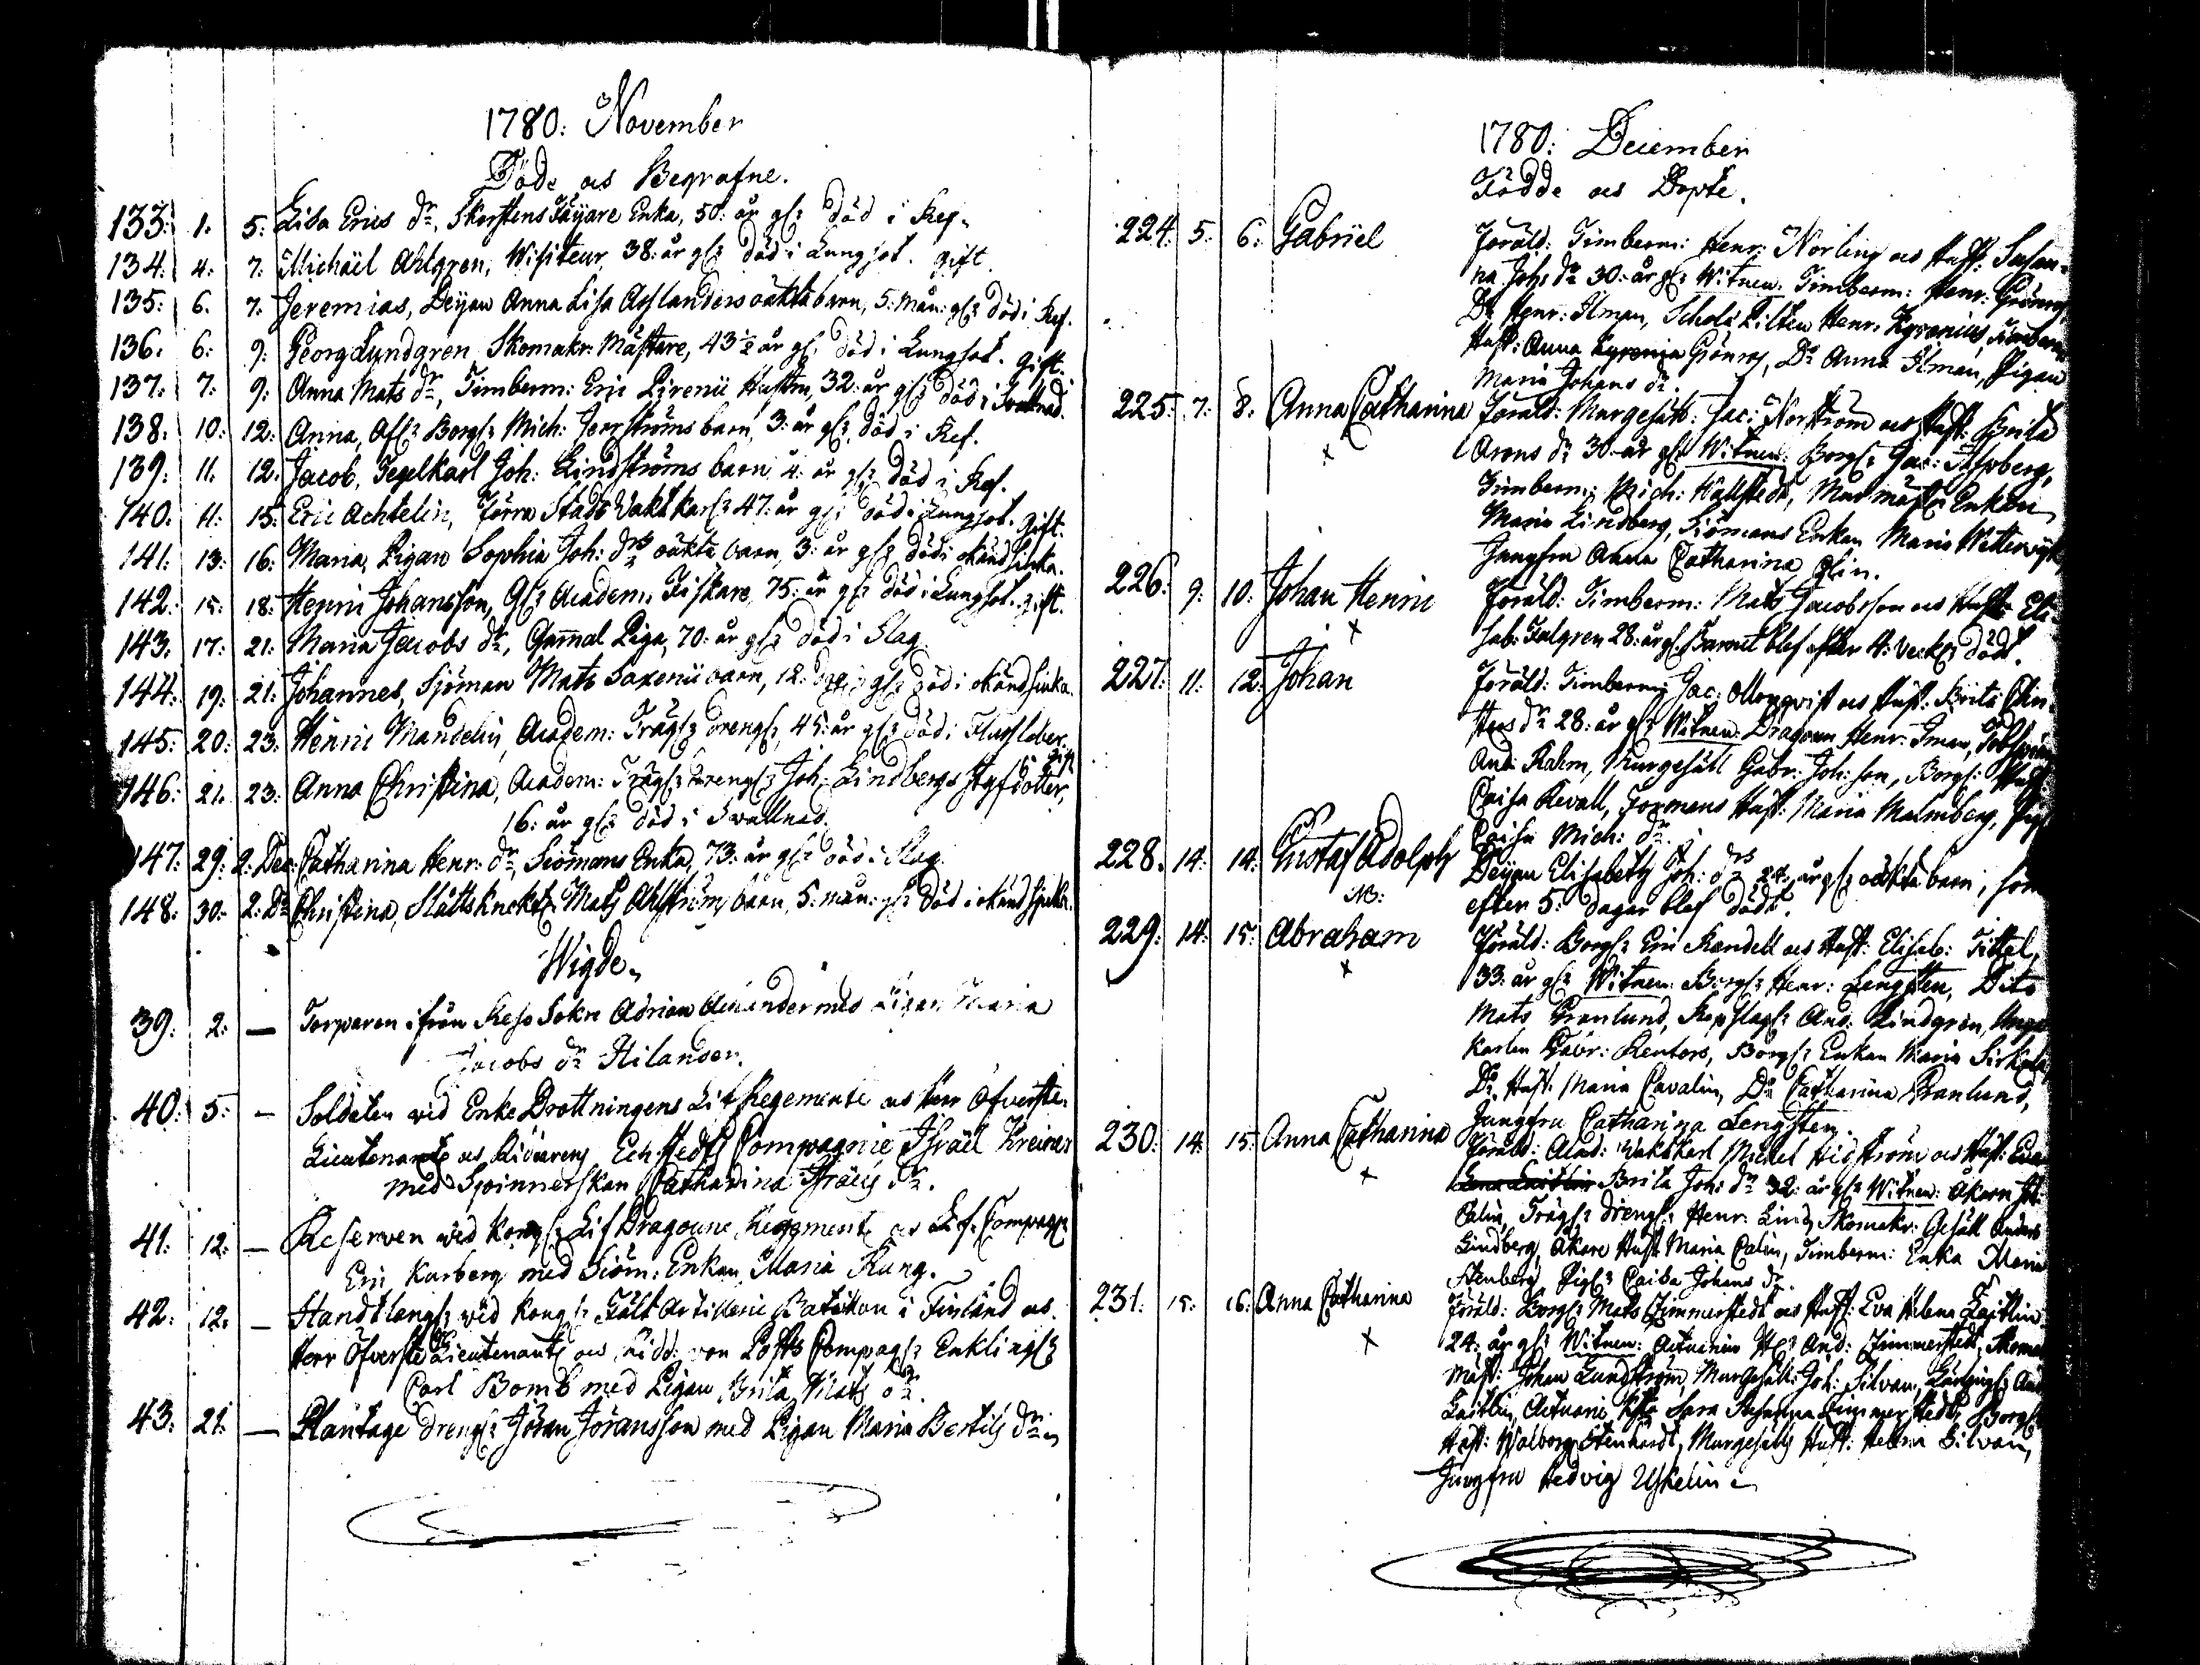 1780: November
Döde och Begrafne.
133: 1. 5: Lisa Erics dr, Skorstens Fäijare Enka, 50: år gl: död i Ref.
134: 4: 7: Michäel Ahlgren, Wisiteur, 38: år gl: död i Lungsot. gift.
135: 6. 7. Jeremias, Deijan Anna Lisa Aslanders oäkta barn, 5: mån: gl: död i Ref.
136. 6: 9: Georg Lundgren Skomakr: Mästare, 43 ½ år gl: död i Lungsot. gift.
137: 7: 9: Anna Mats dr, Timberm: Eric Pirenii Hustru, 32: år gl: död i Svallnad.
138. 10: 12: Anna, Borgr Mich: barn, 3: år gl: död i Ref.
139: 11. 12: Jacob, Tegelkarl Joh: Lindströms barn 4: år gl: död i Ref.
140. 11: 15: Eric Achtelin, Förra Stads Vaktkarl 47: år gl: död i Lungsot. gift.
141. 13: 16: Maria, Pigan Sophia Joh: drs oäkta barn, 3: år gl: död i
142: 15: 18: Henric Johansson, Gl: Academ: Fiskare, 75: år gl: död i Lungsot. gift.
143. 17: 21: Maria Jacobs dr, Gammal Piga, 70: år gl: död i Slag.
144. 19: 21: Johannes, Sjöman Mats Saxenii barn, 12: gl: död i
145: 20: 23: Henric Mandelin, Academ: Trägl: drengl:, 45: år gl: död i
gift
146: 21. 23: Anna Christina, Academ: Trägl: drengl: Joh: Lindbergs Styfdotter,
16: år gl: död i Svallnad.
147: 29: 2: Dec: Catharina Henr: dr, Siömans Enka, 73: år gl: död i Slag.
148: 30: 2: Do Christina, Slåttsknekt: Mats Ahlström barn, 5: mån: gl: död i
Wigde.
39: 2: — Torparen ifrån Reso Sokn Adrian med Pigan Maria
Jacobs dr Hilander.
40: 5: — Soldaten wid Enke Drottningens Lif Regemente och Herr Öfverste
Lieutenants och Riddarens Echstedts Compagnie Israël Kreiner
med Spinnerskan Catharina Israëls dr.
41: 12: — Reserven wid Kongl: Lif Dragoune Regemente och Lif Compagn:
Eric Karberg med Siöm: Enkan Maria Kung.
42: 12: — Handtlangr wid Kongl: Fält Artillerie Bataillon i Finland och
Herr Öfverste Lieutenants och Ridd: von Compagn:
Carl Bomb med Pigan Brita Mats dr.
43: 21: — Plantage drengl: Jöran Jöransson med Pigan Maria Bertils dr.
1780: December
Födde och Döpte.
224: 5: 6: Gabriel Föräld: Timberm: Henr: Norling och Hust: Susan-
na Johs dr 30: år gl: Witnen: Timberm: Henr: Grönros,
Do Henr: Ilman, Schol: Henr: Kyrenius, Timberm:
Hust: Anna Kyrenia Grönros, Do Anna Ilman, Pigan
Maria Johans dr.
225: 7: 8: Anna Catharina Föräld: Murgesäll: Jac: Norström och Hust: Brita
Arons dr 30: år gl: Witnen: Borgr Jac:
Timberm: Mich: Hallstedt, Murmäst: Enkan
Maria Lindberg, Siömans Enkan Maria Wetterwijk,
Jungfru Anna Catharina
226: 9: 10: Johan Henric Föräld: Timberm: Mats Jacobsson och Hust: Eli-
sab: Falgren 28: år gl: Barnet blef efter 4: veck: dödt.
227: 11: 12: Johan Föräld: Timberm: Jac: Monqvist och Hust: Brita Chri-
sters dr 28: år gl: Witnen: Dragoun Henr: Iman,
And: Rahm, Murgesäll Gabr: Joh: son, Borgr: Hust:
Caisa Revall, Formans Hust: Maria Malmberg, Pig:
Caisa Mich: dr.
228. 14: 14: Gustaf Adolph Deijan Elisabeth Joh: drs 24: år gl: oäkta barn, som
NB: efter 5: dagar blef dödt.
229: 14: 15: Abraham Föräld: Borgr Eric Randell och Hust: Elisab: Tittel,
33: år gl: Witnen: Borgr Henr: Lengsten, Dito
Mats Granlund, Repslag: And: Lindgren, Unga
Karlen Gabr: Rentors, Borgr Enkan Maria
Do Hust: Maria Cavalin, Do Catharina Granlund,
Jungfru Catharina Lengsten.
230: 14: 15: Anna Catharina Föräld: Acad: Vaktkarl Michel Hidström och Hust:
Brita Johs dr 32: år gl: Witnen: Åkaren Joh:
Calin, Trägl: drengl: Henr: Lind, Skomakr: Gesäll Anders
Lindberg, Åkare Hust: Maria Calin, Timberm: Enka Maria
Stenberg, Pigl: Caisa Johans dr.
231. 15: 16: Anna Catharina Föräld: Borgr Mats Zimmerstedt och Hust: Eva Helena Laitlin
24: år gl: Witnen: Actuarius Hr And: Zimmerstedt, Skomak:
mäst: Johan Lundström, Murgesäll: Joh: Silvan, And:
Laitlin, Actuarie Sara Susanna Zimmerstedt, Borgr:
Hust: Walborg Stenhardt, Murgesälls Hust: Helena Silvan,
Jungfru Hedvig Uskelin